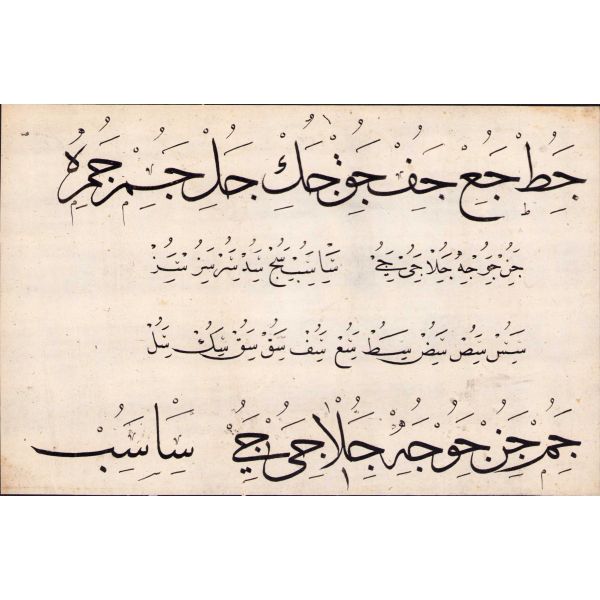 جط جع جف جق جك جل جم
جن جو جه جلا جى جي سا سب سج سد سر
سس سص سط سع سف سق سك سل
جم جن جو جه جلا جى جي سا سب